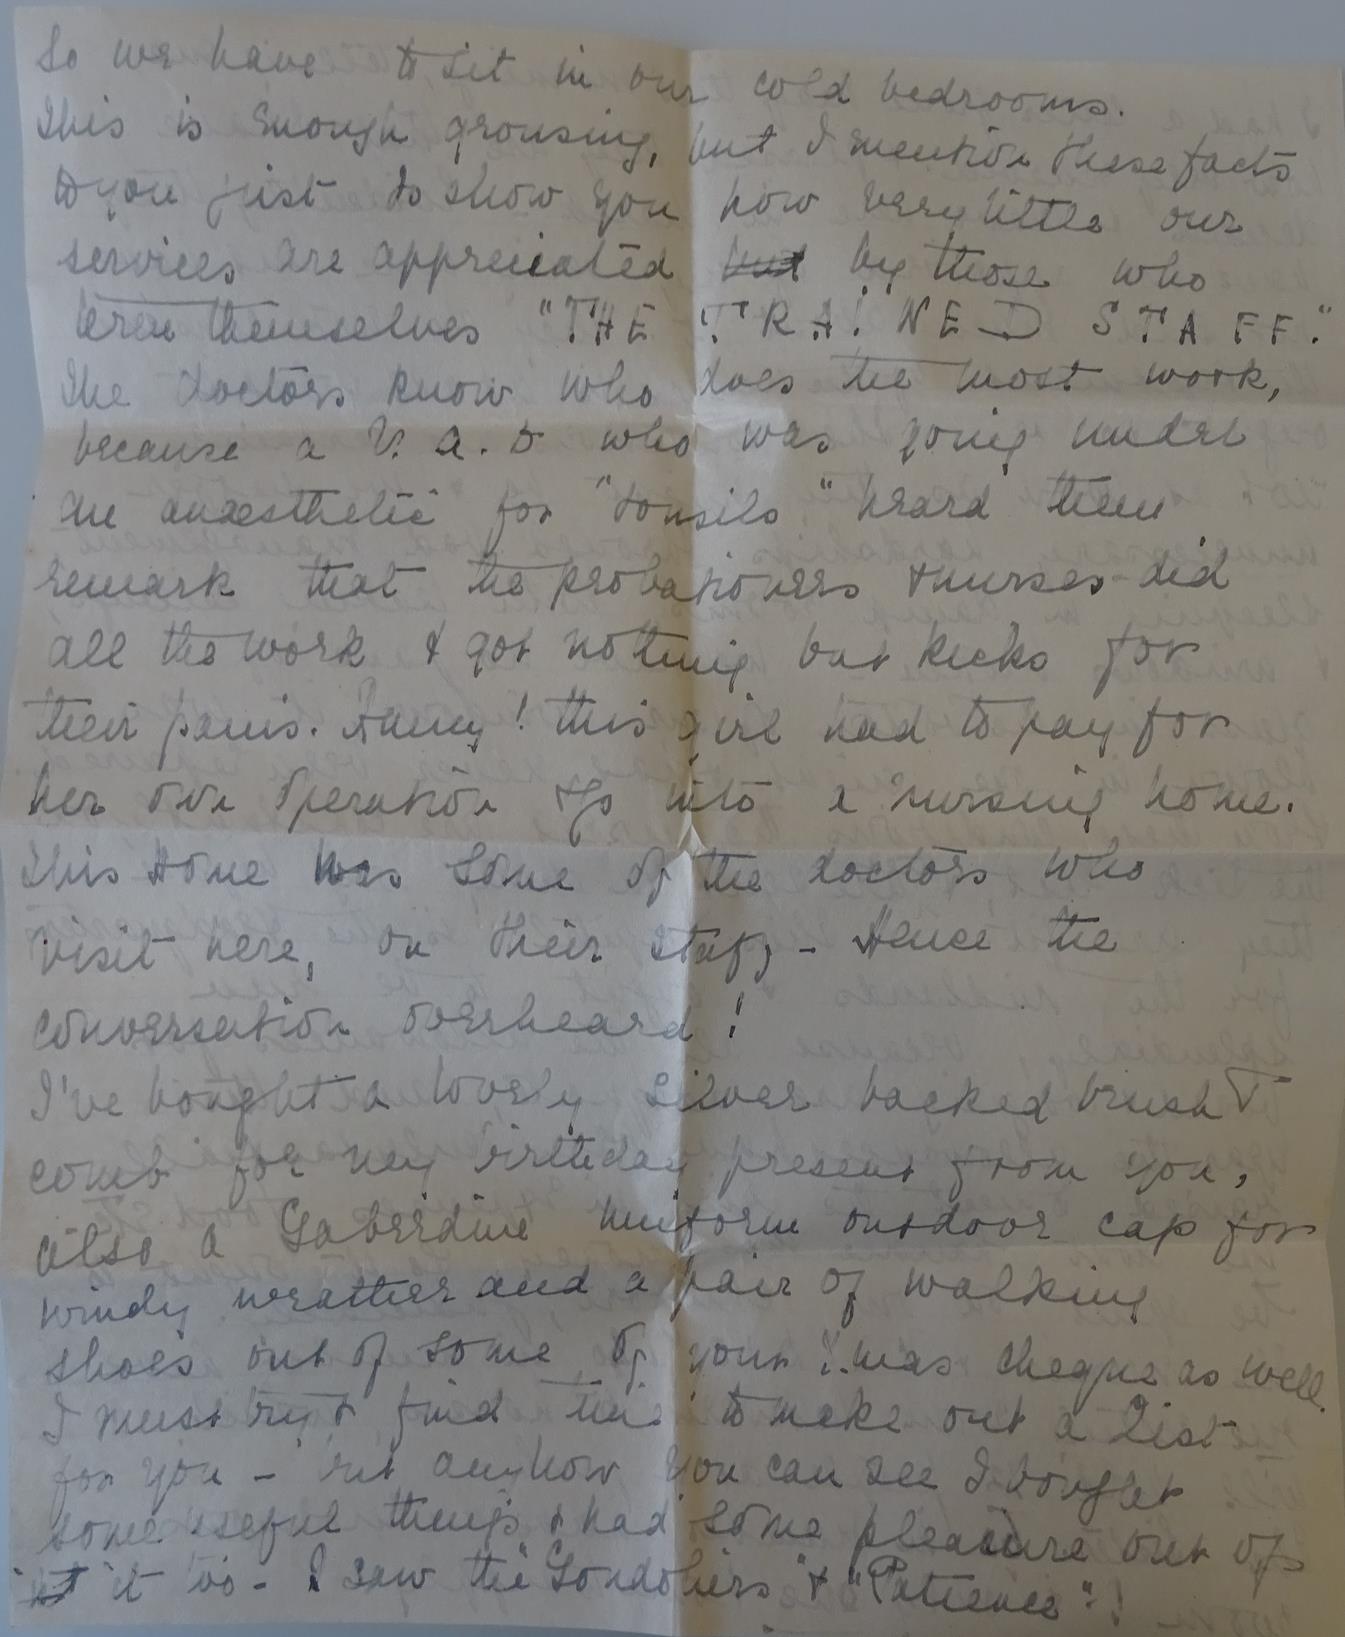 So we have to sit in our cold bedrooms.
This is enough grousing, but I mention these facts
to you just to show you how very little our
services are appreciated but by those who
term themselves "THE TRAINED STAFF."
The doctors know who does the most work,
because a V.A.D who was going under
the anaesthetic for "tonsils" heard them
remark that the probationers & nurses did
all the work & got nothing but kicks for
their pains. Fancy! this girl had to pay for
her own operation & go into a nursing home.
This Home has some of the doctors who
visit here, on their staff - Hence the
conversation overheard!
I've bought a lovely silver backed brush &
comb for my birthday present from you,
also a Gaberdine uniform outdoor cap for
windy weather and a pair of walking
shoes out of some of your X.mas cheque as well.
I must try & find time to make out a list
for you - but anyhow you can see I bought
some useful things & had some pleasure out of
it too - I saw the "Gondoliers" & "Patience"!